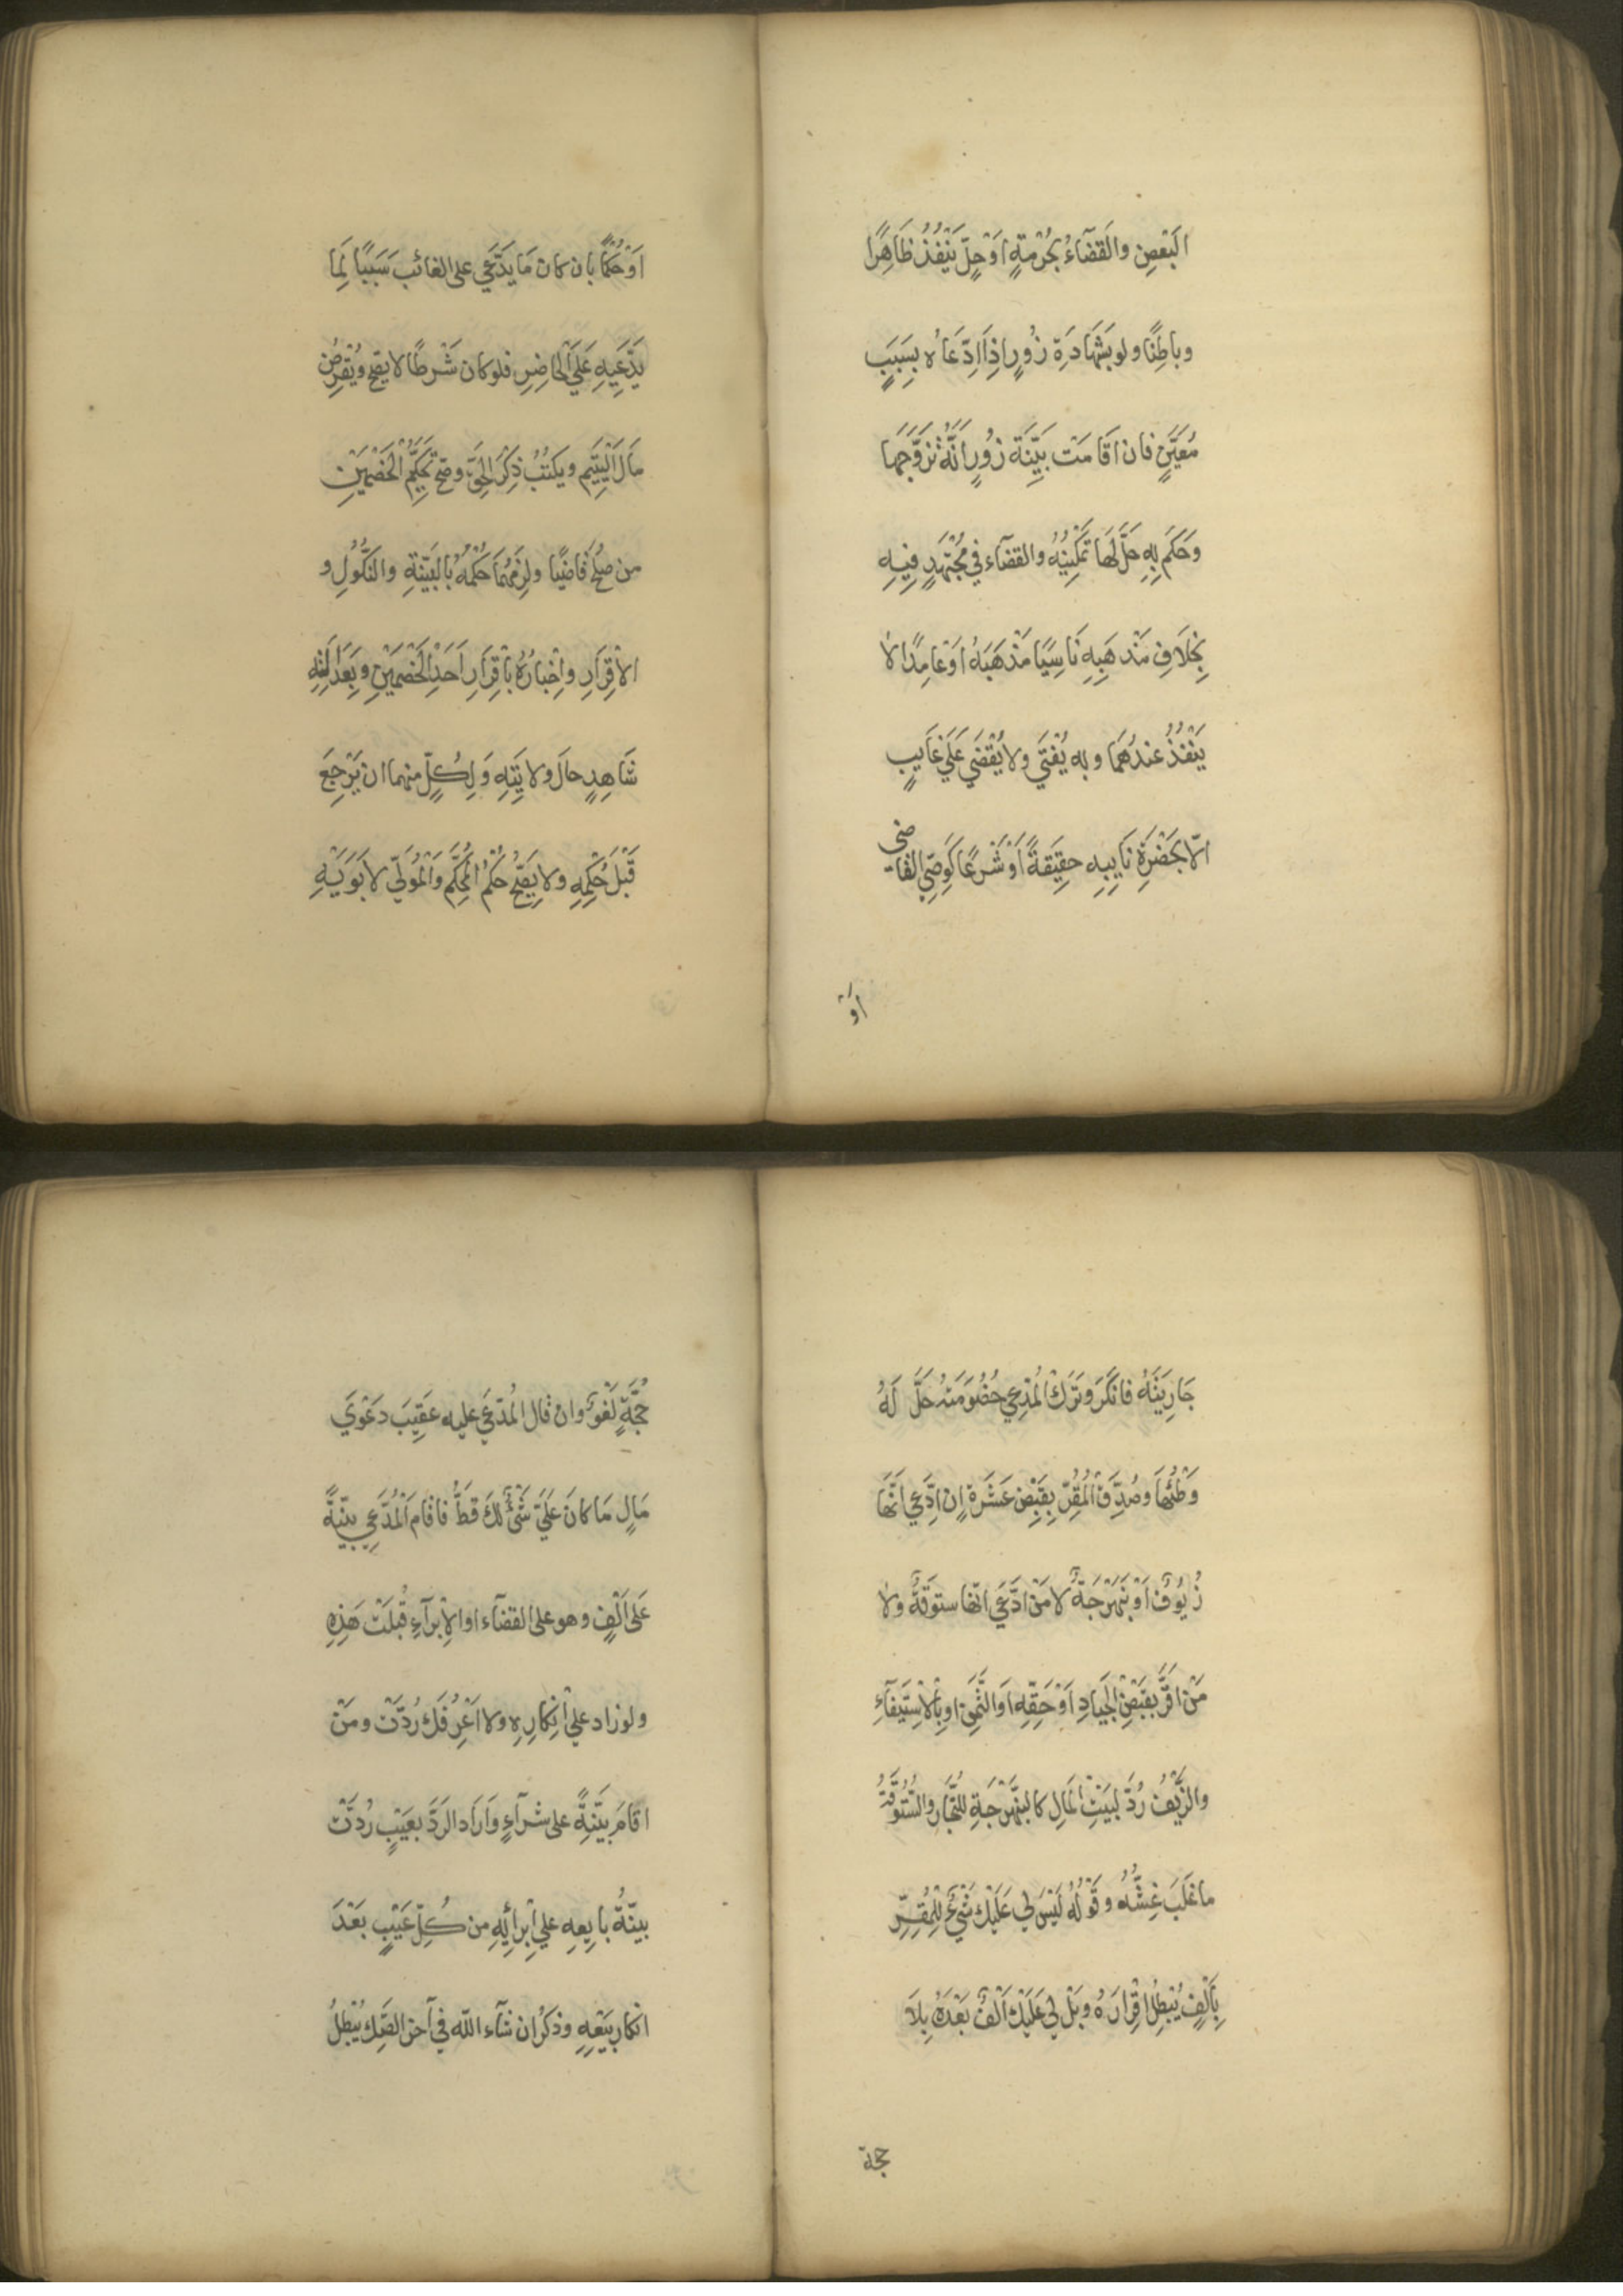 البَعْضِ والَقضَآءُ بِحُرْمَةٍ اَوْحِلٍّ يَنْفُذُ ظَاهِرًا
وباطِنًا ولو بشَهَادَةِ زُورٍ اِذَا ادِّعَاهُ بِسَبَبٍ
مُعَيَّنٍ فان اَقَامَتْ بَيِّنَةَ زُورٍ اَنَّهُ تَزَوَّجَهَا
وَحَكَمَ بِهِ حَلَّ لَهَا تَمْكِينُهُ والقضآء في مُجْتَهَدٍ فِيهِ
بِخِلَافِ مَذْهَبِهِ نَاسِيًا مَذْهَبَهُ اَوْعامِدًا لا
يَنْفُذُ عندَهُمَا وبه يُفْتَي ولا يُقْضَي عَلَي غَايبٍ
الّا بحَضْرَةِ نَايِبِه حقِيقَةً أَوْ شَرْعًا كَوَصِيّ القاضى
اَوْ
اَوْحُكْمًا بان كان مَا يَدَّعِي على الغائب سَبَبًا لِمَا
يَدَّعِيهِ عَلَي الْحاضِرِ فلو كان شَرْطًا لا يصَحّ ويُقْرِضُ
مَالَ الْيَتِيمِ ويَكتُبُ ذِكْرَ الْحَقِّ وصَحّ تَحكِيمُ الْخَصْمَيْنِ
من صلُحَ قاضيًا ولَزِمَهُمَا حُكْمُهُ بالبَيِّنَةِ والنُّكُولِ و
الاْقِرَارِ واِخْبارُهُ بِاْقِرَارِ اَحَدِ الْخَصْمَيْنِ وبِعَدَالَةِ
شَاهِدٍ حالَ ولايَتِهِ وَلِكُلٍّ منهما ان يَرْجِعَ
قَبْلَ حُكْمِهِ ولا يَصِحُّ حُكْمُ الْمُحَكَّمِ وَالْمُوَلَّي لاَبَوَيْهِ
جَارِيَتَهُ فانَكَرَ وتَرَكَ الْمُدَّعِي خُصُومَتَهُ حَلَّ لَهُ
وَطْئُهَا وصُدِّقَ الْمُقِرُّ بِقَبْضِ عَشَرَةٍ اِن ادَّعَي اَنَّهَا
زُيُوفٌ اَوْ نَبَهْرَجَةٌ لا مَنْ ادَّعَي انّها ستوقَةٌ ولا
مَنْ اقَرَّ بِقَبْضِ الْجِيَادِ اَوْ حَقِّه اَوَالثَّمَنِ اوبِالْاسْتِيفَآءِ
والزَّيْفُ رُدَّ لبَيْتِ الْمَالِ كالنَّبَهْرَجَةِ للتُّجَّارِ والسَّتُّوقَةُ
ما غَلَبَ غِشُّهُ وقَوْلُهُ لَيْسَ لي عَلَيْكَ شَيْءٌ لِلْمُقِرِّ
بِأَلْفٍ يُبْطِلُ اِقْرَارَهُ وبَلْ لي عَلَيْكَ اَلْفٌ بَعْدَهُ بِلَا
حجة
حُجَّةٍ لَغْوٌ وان قال المُدَّعَي عليه عَقِيبَ دَعْوَي
مَالٍ مَا كانَ عَلَيَّ شَيْءٌ لَكَ قطُّ فاقامَ الْمُدَّعِي بيّنَةً
عَلَى اَلْفٍ وهو على القضآء او الاْبرآءِ قُبِلَتْ هَذِهِ
ولو زاد على اْنِكارِهِ ولا اَعْرِفُكَ رُدَّتْ ومَنْ
اقامَ بَيِّنَةً على شرآءٍ وَاَرَاد الرَّدَّ بعَيْبٍ رُدّتْ
بيّنَةُ بايِعِهِ علي اِبْرائِهِ من كُلِّ عَيْبٍ بَعْدَ
انكار بَيْعِهِ وذكْرُ ان شآء اللّه في آخر الصَّكِّ يُبْطِلُ